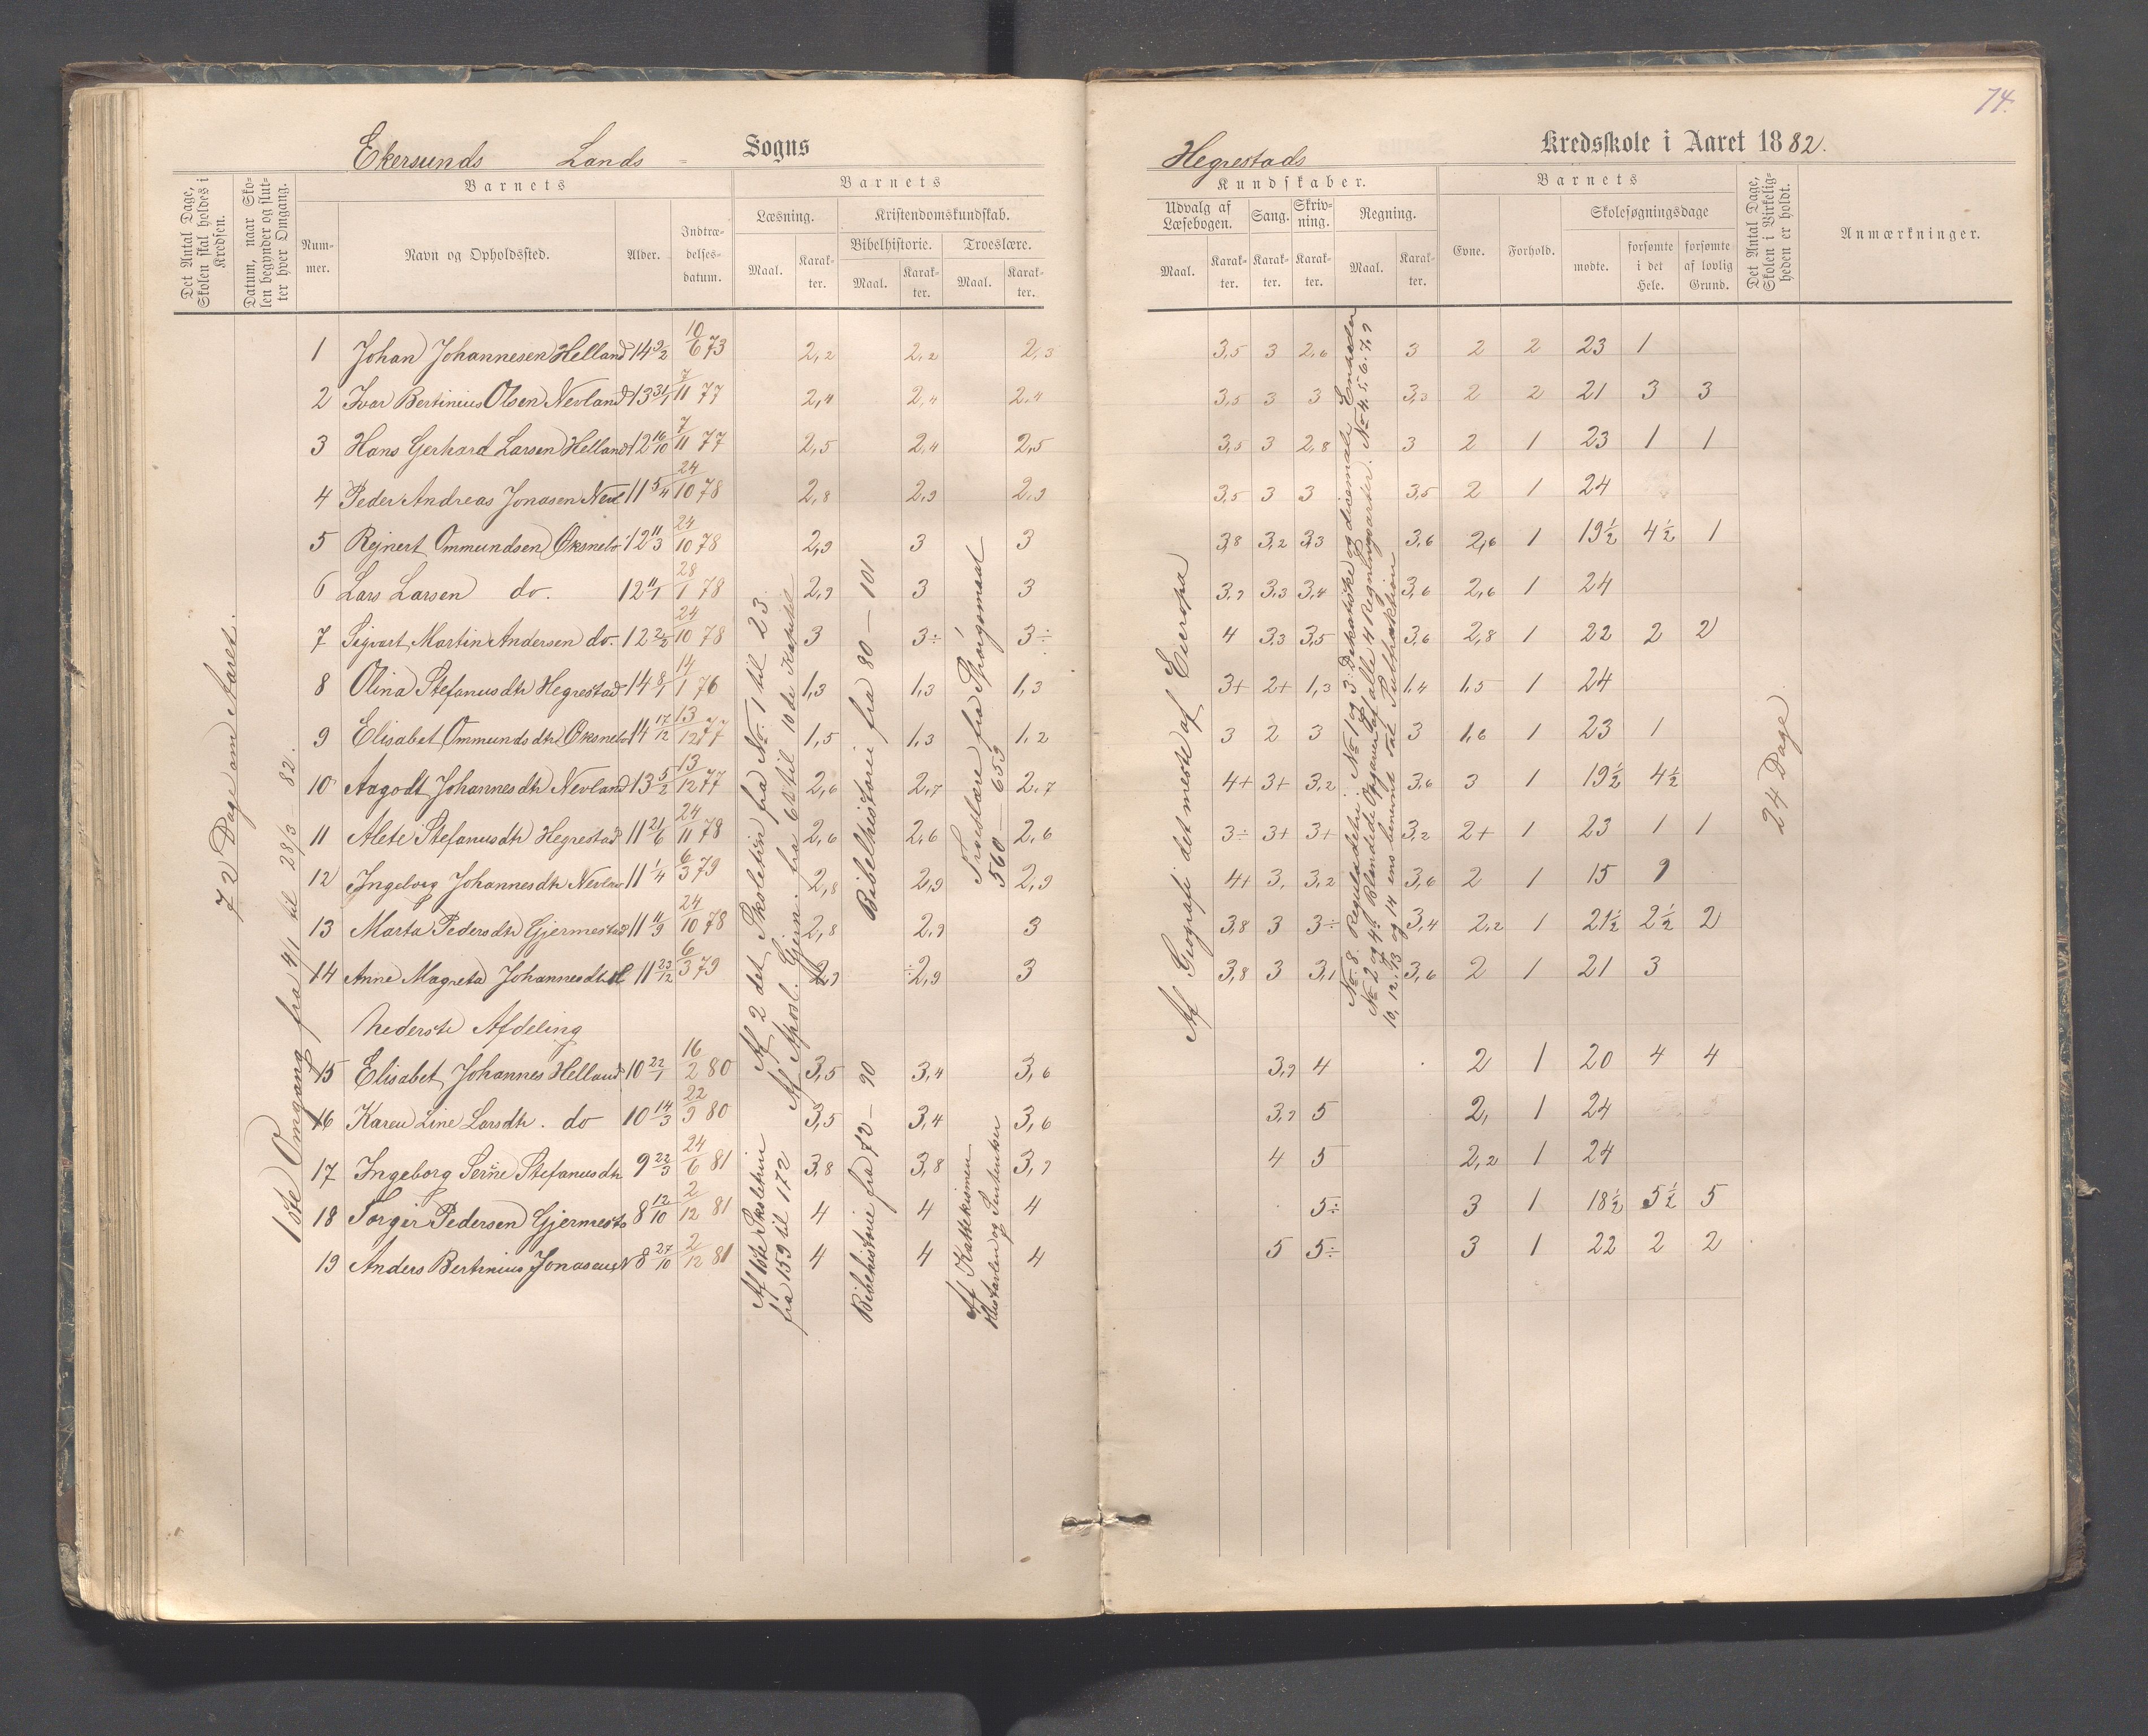 74.
Ekersunds Lands = Sogns
Hegrestads Kredsskole i Aaret 1882.
Det Antal Dage, Skolen skal holdes i Kredsen.
Datum, naar Skolen begynder og slutter hver Omgang.
Barnets
Nummer.
Navn og Opholdssted.
Alder.
Indtrædelsesdatum.
Barnets
Læsning.
Kristendomskundskab.
Bibelhistorie.
Troeslære.
Maal. Karakter. Maal. Karakter. Maal. Karakter.
Kundskaber.
Udvalg af Læsebogen.
Sang.
Skrivning.
Regning.
Maal. Karakter. Karakter. Karakter. Maal. Karakter.
Barnets
Evne. Forhold.
Skolesøgningsdage
mødte. forsømte i det Hele. forsømte af lovlig Grund.
Det Antal Dage, Skolen i Virkeligheden er holdt.
Anmærkninger.
72 Dage om Aaret.
1ste Omgang fra 4/1 til 28/3 82.
1 Johan Johannesen Helland 14 9/2 10/6 73 2,2 2,2 2,3 3,5 3 2,6 3 2 2 23 1
2 Ivar Bertinius Olsen Nevland 13 31/1 7/11 77 2,4 2,4 2,4 3,5 3 3 3,3 2 2 21 3 3
3 Hans Gerhard Larsen Helland 12 16/10 7/11 77 2,5 2,4 2,5 3,5 3 2,8 3 2 1 23 1 1
4 Peder Andreas Jonasen Nevl 11 5/4 24/10 78 2,8 2,9 2,9 3,5 3 3 3,5 2 1 24
5 Rejnert Ommundsen Øksnebr 12 11/3 24/10 78 2,9 3 3 3,8 3,2 3,3 3,6 2,6 1 19½ 4½ 1
6 Lars Larsen do. 12 11/1 28/1 78 2,9 3 3 3,9 3,3 3,4 3,6 2,6 1 24
7 Sigvart Martin Andersen do. 12 2/2 24/10 78 3 3÷ 3÷ 4 3,3 3,5 3,6 2,8 1 22 2 2
8 Olina Stefanusdtr Hegrestad 14 8/1 14/1 76 1,3 1,3 1,3 3+ 2+ 1,3 1,4 1,5 1 24
9 Elisabet Ommundsdtr Øksnebr 14 17/12 13/12 77 1,5 1,3 1,2 3 2 3 3 1,6 1 23 1
10 Aagodt Johannesdtr Nevland 13 5/2 13/12 77 2,6 2,7 2,7 4+ 3+ 3,2 3,6 3 1 19½ 4½
11 Alete Stefanusdtr Hegrestad 11 21/6 24/11 78 2,6 2,6 2,6 3÷ 3+ 3+ 3,2 2+ 1 23 1 1
12 Ingeborg Johannesdtr Nevland 11 1/4 6/3 79 2,8 2,9 2,9 4+ 3, 3,2 3,6 2 1 15 9
13 Marta Pedersdtr Gjermestad 11 11/9 24/10 78 2,8 2,9 3 3,8 3 3÷ 3,4 2,2 1 21½ 2½ 2
14 Anne Magreta Johannesdtr H 11 23/12 6/3 79 2,9 ÷2,9 3 3,8 3 3,1 3,6 2 1 21 3
Nederste Afdeling
15 Elisabet Johannes Helland 10 22/1 16/2 80 3,5 3,4 3,6 3,9 4 2 1 20 4 4
16 Karen Line Larsdtr. do 10 14/3 22/3 80 3,5 3,4 3,6 3,9 5 2, 1 24
17 Ingeborg Serine Stefanusdtr 9 22/3 24/6 81 3,8 3,8 3,9 4 5 2,2 1 24
18 Torger Pedersen Gjermesta 8 12/10 2/12 81 4 4 4 5÷ 3 1 18½ 5½ 5
19 Anders Bertinius Jonasen N 8 27/10 2/12 81 4 4 4 5 5÷ 3 1 22 2 2
Af 2 det Skoletrin fra No. 1 til 23.
Af Apost. Gjern. fra 6te til 10de Kapitel
Bibelhistorie fra 80 — 101
Troeslære fra Spørgsmaal
560 — 653
Af 1ste Skoletrin
fra 159 til 172
Bibelhistorie fra 72 – 90
Af Kattekismen
Hustavlen og Skriftemaal
Af Geografi det meste af Europa
No. 8. Reguladetri. No 1 og 3: Dekadiske og decimale Enheder
No 2 og 4. Blandede Opgaver af alle 4 Regningsarter. No 4. 5. 6. 7. 9
10, 12. 13 og 14 ens benevnt Tal Subtraktion
24 Dage